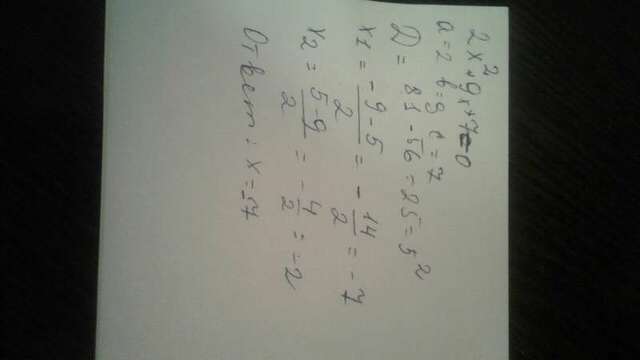 2x²+9x+7=0
a=2 b=9 c=7
D = 81-56=25=5²
x1 = -9-5/2 = -14/2 = -7
x2 = 5-9/2 = -4/2 = -2
Ответ: x=-7